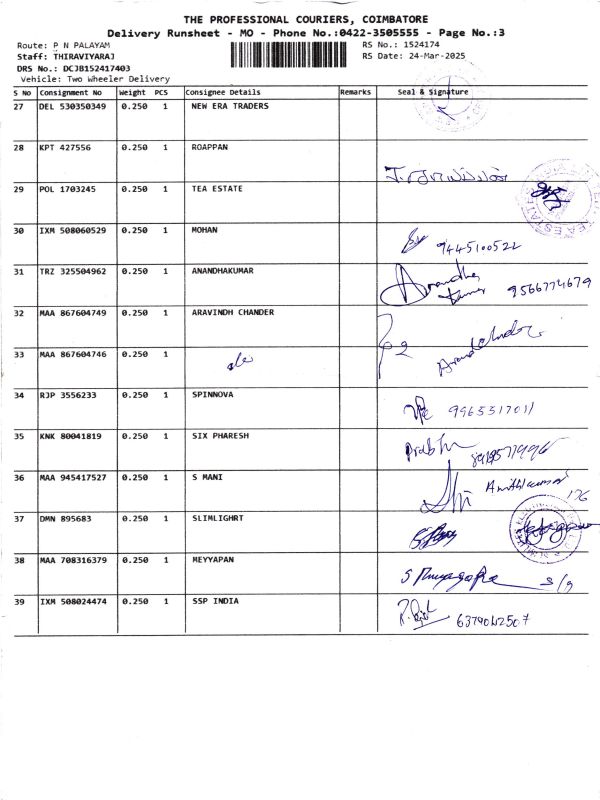 THE PROFESSIONAL COURIERS, COIMBATORE
Delivery Runsheet - MO - Phone No.:0422-3505555 - Page No.:3
Route: P N PALAYAM
RS No.: 1524174
Staff: THIRAVIYARAJ
RS Date: 24-Mar-2025
DRS No.: DCJB152417403
Vehicle: Two Wheeler Delivery
S No Consignment No Weight PCS Consignee Details Remarks Seal & Signature
27 DEL 530350349 0.250 1 NEW ERA TRADERS
28 KPT 427556 0.250 1 ROAPPAN
29 POL 1703245 0.250 1 TEA ESTATE
30 IXM 508060529 0.250 1 MOHAN 9445100522
31 TRZ 325504962 0.250 1 ANANDHAKUMAR Anandha Kumar 9566774679
32 MAA 867604749 0.250 1 ARAVINDH CHANDER
33 MAA 867604746 0.250 1
34 RJP 3556233 0.250 1 SPINNOVA 9965317011
35 KNK 80041819 0.250 1 SIX PHARESH Prabhu
36 MAA 945417527 0.250 1 S MANI
37 DMN 895683 0.250 1 SLIMLIGHRT
38 MAA 708316379 0.250 1 MEYYAPAN
39 IXM 508024474 0.250 1 SSP INDIA 6379042507